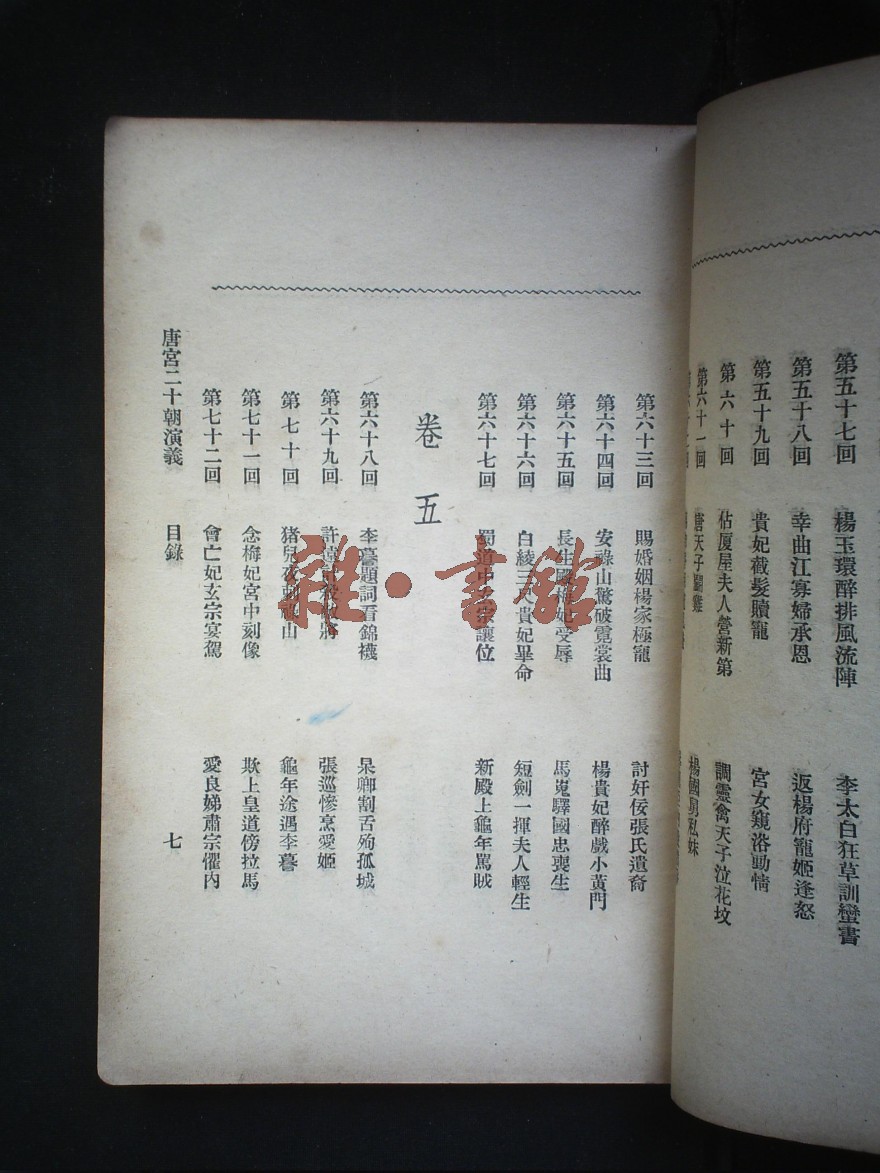 第五十七回　楊玉環醉排風流陣　李太白狂草訓蠻書
第五十八回　幸曲江寡婦承恩　返楊府寵姬逢怒
第五十九回　貴妃截髮贖寵　宮女窺浴動情
第六十回　佔厦屋夫人營新第　調靈禽天子泣花坟
第六十一回　唐天子鬭雞　楊國舅私妹
第六十三回　賜婚姻楊家極寵　討奸佞張氏遺裔
第六十四回　安祿山驚破霓裳曲　楊貴妃醉戲小黃門
第六十五回　長生殿梅妃受辱　馬嵬驛國忠喪生
第六十六回　白綾三尺貴妃畢命　短劍一揮夫人輕生
第六十七回　蜀道中　讓位　新殿上龜年罵賊
卷五
第六十八回　李謩題詞看錦襪　杲卿割舌殉孤城
第六十九回　許遠　張巡慘烹愛姬
第七十回　猪兒夜刺祿山　龜年途遇李謩
第七十一回　念梅妃宮中刻像　欺上皇道傍拉馬
第七十二回　會亡妃玄宗宴駕　愛良娣肅宗懼內
唐宮二十朝演義　目錄　七
雜·書館